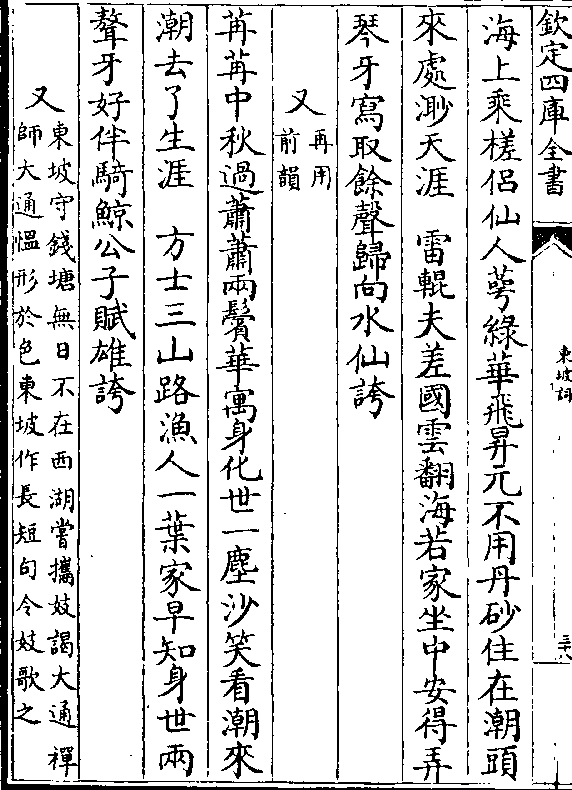 欽定四庫全書
東坡詞
三十八
海上乘槎侶仙人萼綠華飛昇元不用丹砂住在潮頭
來處渺天涯　雷輥夫差國雲翻海若家坐中安得弄
琴牙寫取餘聲歸向水仙誇
又再用前韻
苒苒中秋過蕭蕭兩鬢華寓身化世一塵沙笑看潮來
潮去了生涯　方士三山路漁人一葉家早知身世兩
聱牙好伴騎鯨公子賦雄誇
又東坡守錢塘無日不在西湖嘗攜妓謁大通禪
師大通愠形於色東坡作長短句令妓歌之